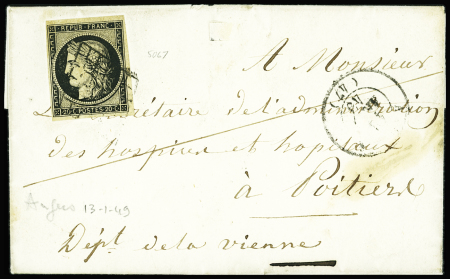 REPUB. FRANC.
20 c POSTES 20 c
5067
A Monsieur
Le Secrétaire de l'administration
des hospices et hopitaux
à Poitiers
Angers 13-1-49
Dépt de la vienne